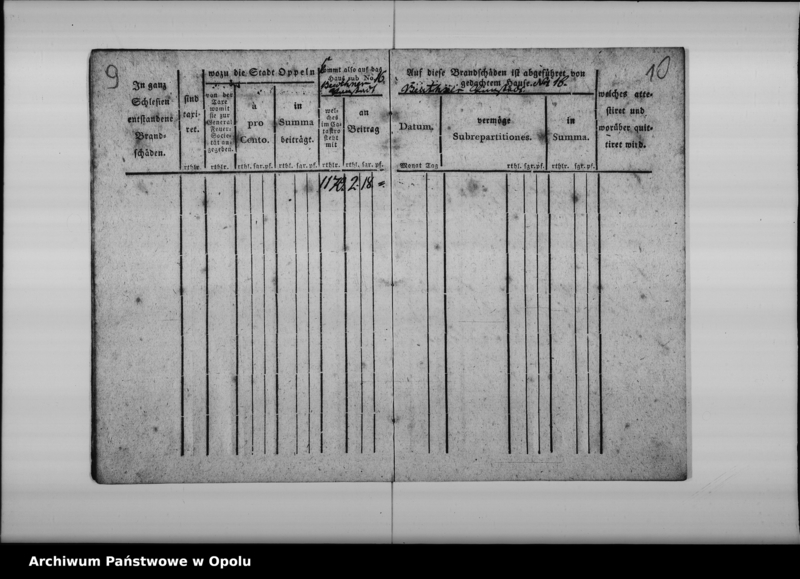 9
10
In ganz
Schlesien
entstandene
Brand-
schäden.
sind
taxi-
ret.
rthlr.
wozu die Stadt Oppeln
von der
Taxe
womit
sie zur
General
Feuer-
Societ-
tät na-
gegeben.
rthlr.
à
pro
Cento.
rthl. sgr. pf.
in
Summa
beiträgt.
rthl. sgr. pf.
kommt also auf das
Haus sub No. 16
wel-
ches
im Ca-
tastro
steht
mit
rthlr.
an
Beitrag
rthl. sgr. pf.
Auf diese Brandschäden ist abgeführet von
gedachtem Hause No. 16.
Datum,
Monat Tag
vermöge
Subrepartitiones.
rthl. sgr. pf.
in
Summa.
rthlr. sgr. pf.
welches atte-
stiret und
worüber quit-
tiret wird.
2 18
Archiwum Państwowe w Opolu